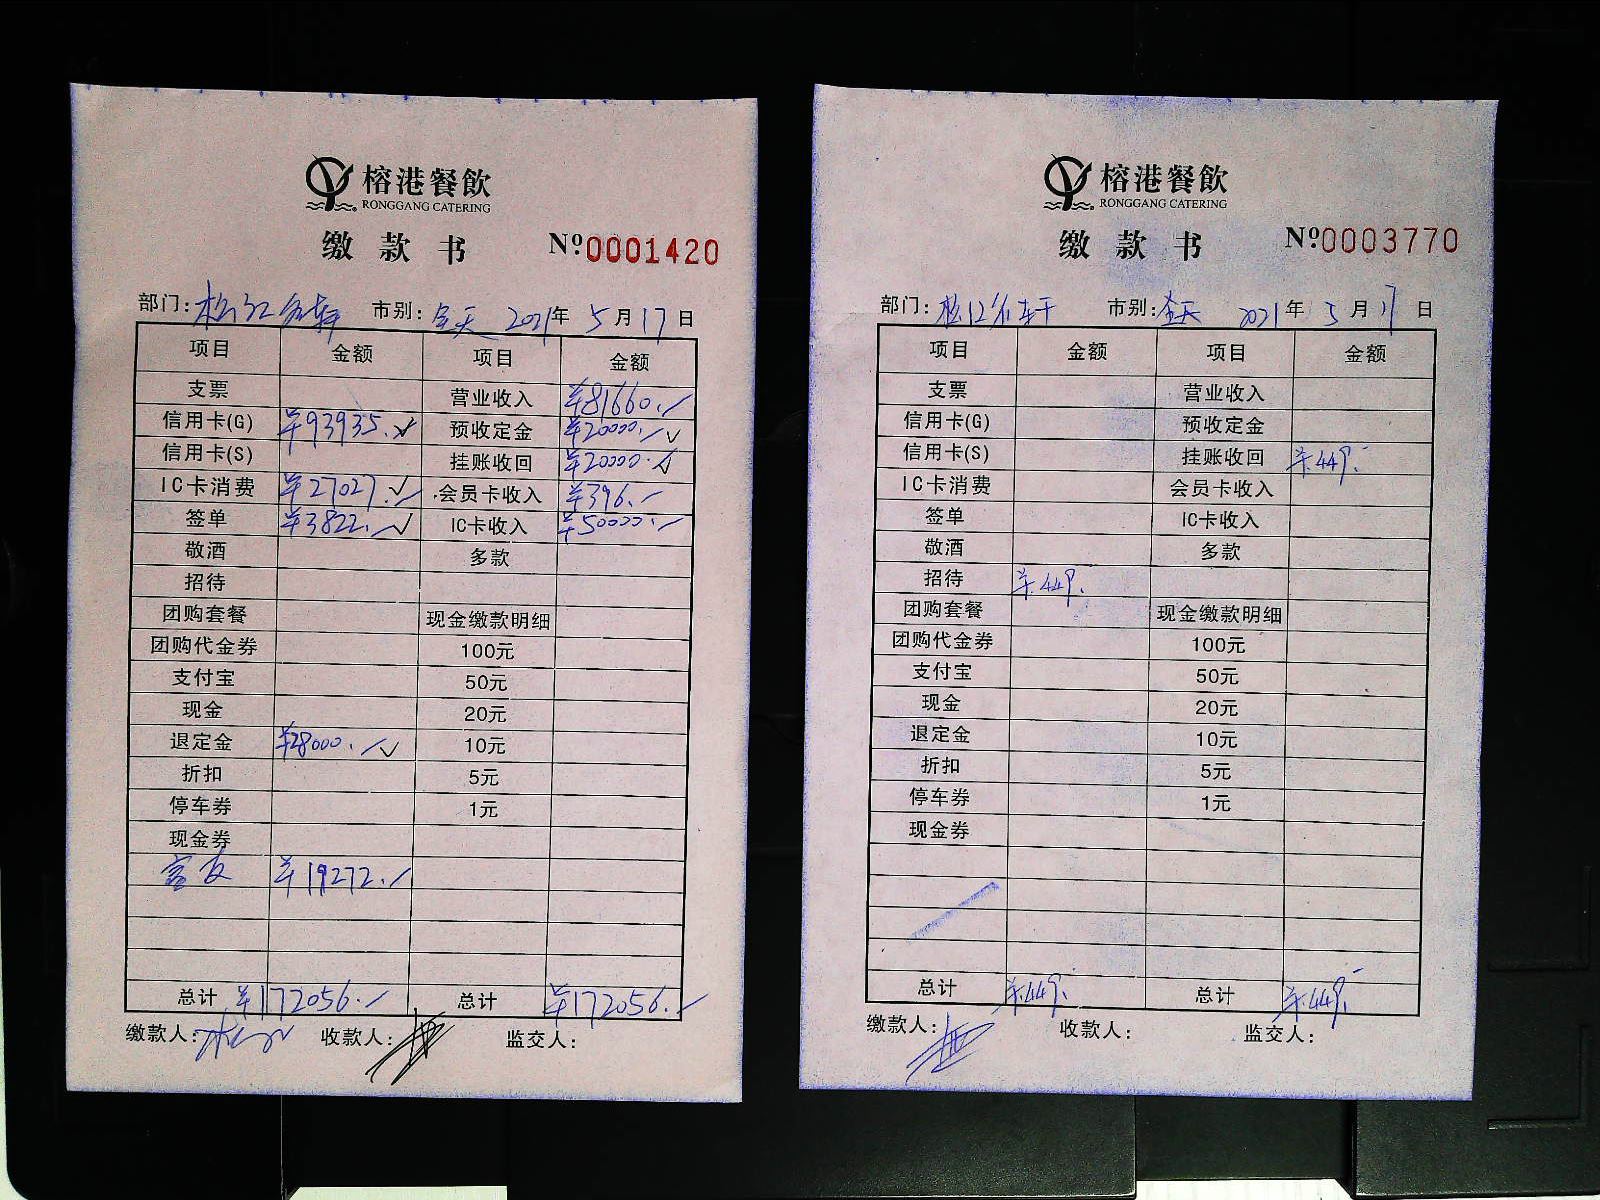 榕港餐飲
RONGGANG CATERING
缴款书 Nº:0001420
部门: 松江名轩 市别: 全天 2021年 5月17日
项目 金额 项目 金额
支票 营业收入 ¥81660.-
信用卡(G) ¥93935.- 预收定金 ¥20000.-
信用卡(S) 挂账收回 ¥20000.-
IC卡消费 ¥27027.- 会员卡收入 ¥396.-
签单 ¥3822.- IC卡收入 ¥50000.-
敬酒 多款
招待
团购套餐 现金缴款明细
团购代金券 100元
支付宝 50元
现金 20元
退定金 ¥28000.- 10元
折扣 5元
停车券 1元
现金券
¥19272.-
总计 ¥172056.- 总计 ¥172056.-
缴款人: 收款人: 监交人:
榕港餐飲
RONGGANG CATERING
缴款书 Nº:0003770
部门: 松江名轩 市别: 全天 2021年 5月17日
项目 金额 项目 金额
支票 营业收入
信用卡(G) 预收定金
信用卡(S) 挂账收回 ¥449.-
IC卡消费 会员卡收入
签单 IC卡收入
敬酒 多款
招待 ¥449.
团购套餐 现金缴款明细
团购代金券 100元
支付宝 50元
现金 20元
退定金 10元
折扣 5元
停车券 1元
现金券
总计 ¥449.- 总计 ¥449.-
缴款人: 收款人: 监交人: